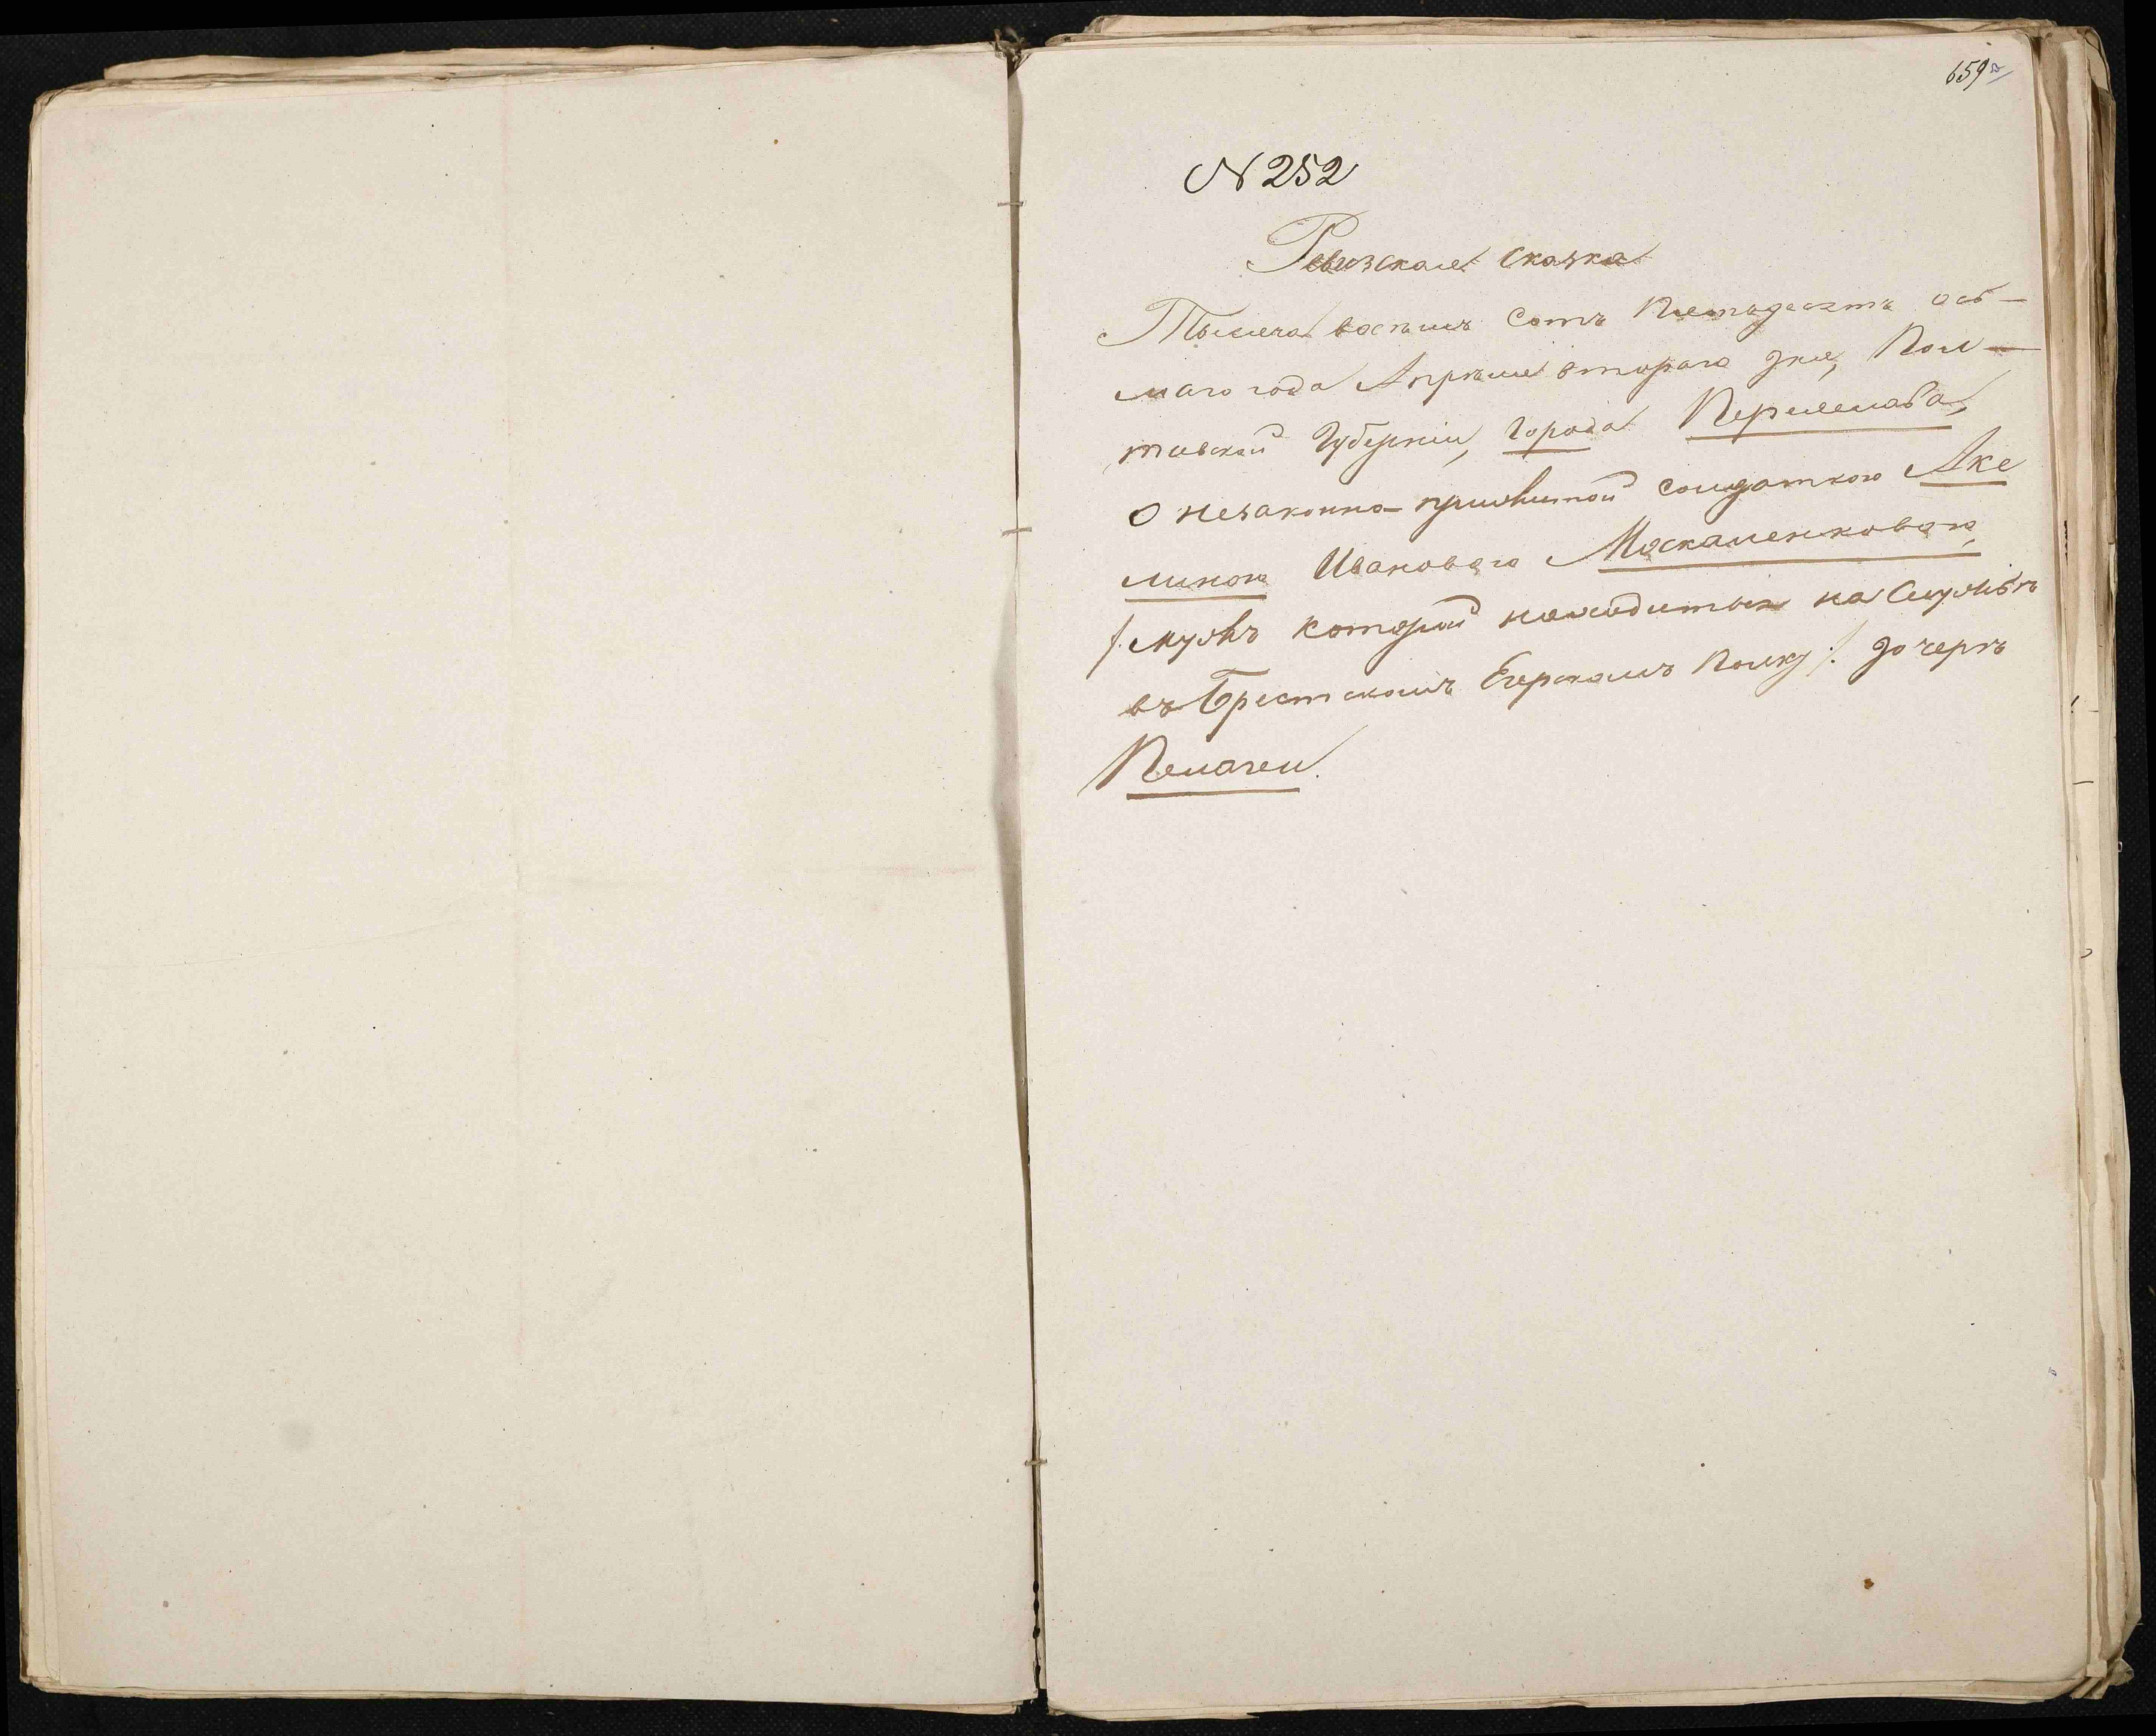 659
N 252
Ревизская сказка
Тысяча восемь сотъ Пятьдесятъ ось—
маго года Апреля втораго дня, Пол—
тавской Губерніи, Города Переяслава,
О незаконно-прижитой солдаткою Аке
линою Ивановою Москаленковою,
/: мужъ которой находится на Службѣ
въ Брестскомъ Егерскомъ Полку :/ дочерѣ
Пелагеи.